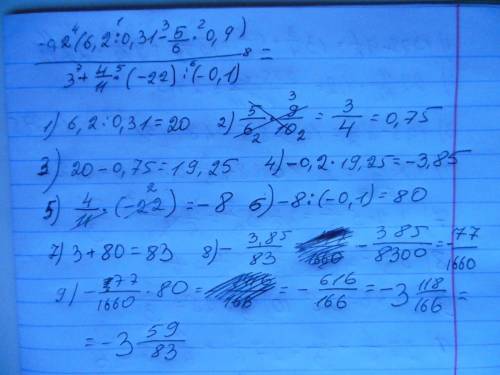 -0,2⁴(6,2¹:0,31-³5/6·²0,9)
3⁷+4/11·⁵(-22):⁶(-0,1) ⁸ =
1) 6,2:0,31=20 2) 5/6·9/10=3/4=0,75
3) 20-0,75=19,25 4)-0,2·19,25=-3,85
5) 4/11·(-22)=-8 6)-8:(-0,1)=80
7) 3+80=83 8)-3,85/83 -385/8300=-77/1660
9)-177/1660·80= =-616/166=-3 118/166=
=-3 59/83